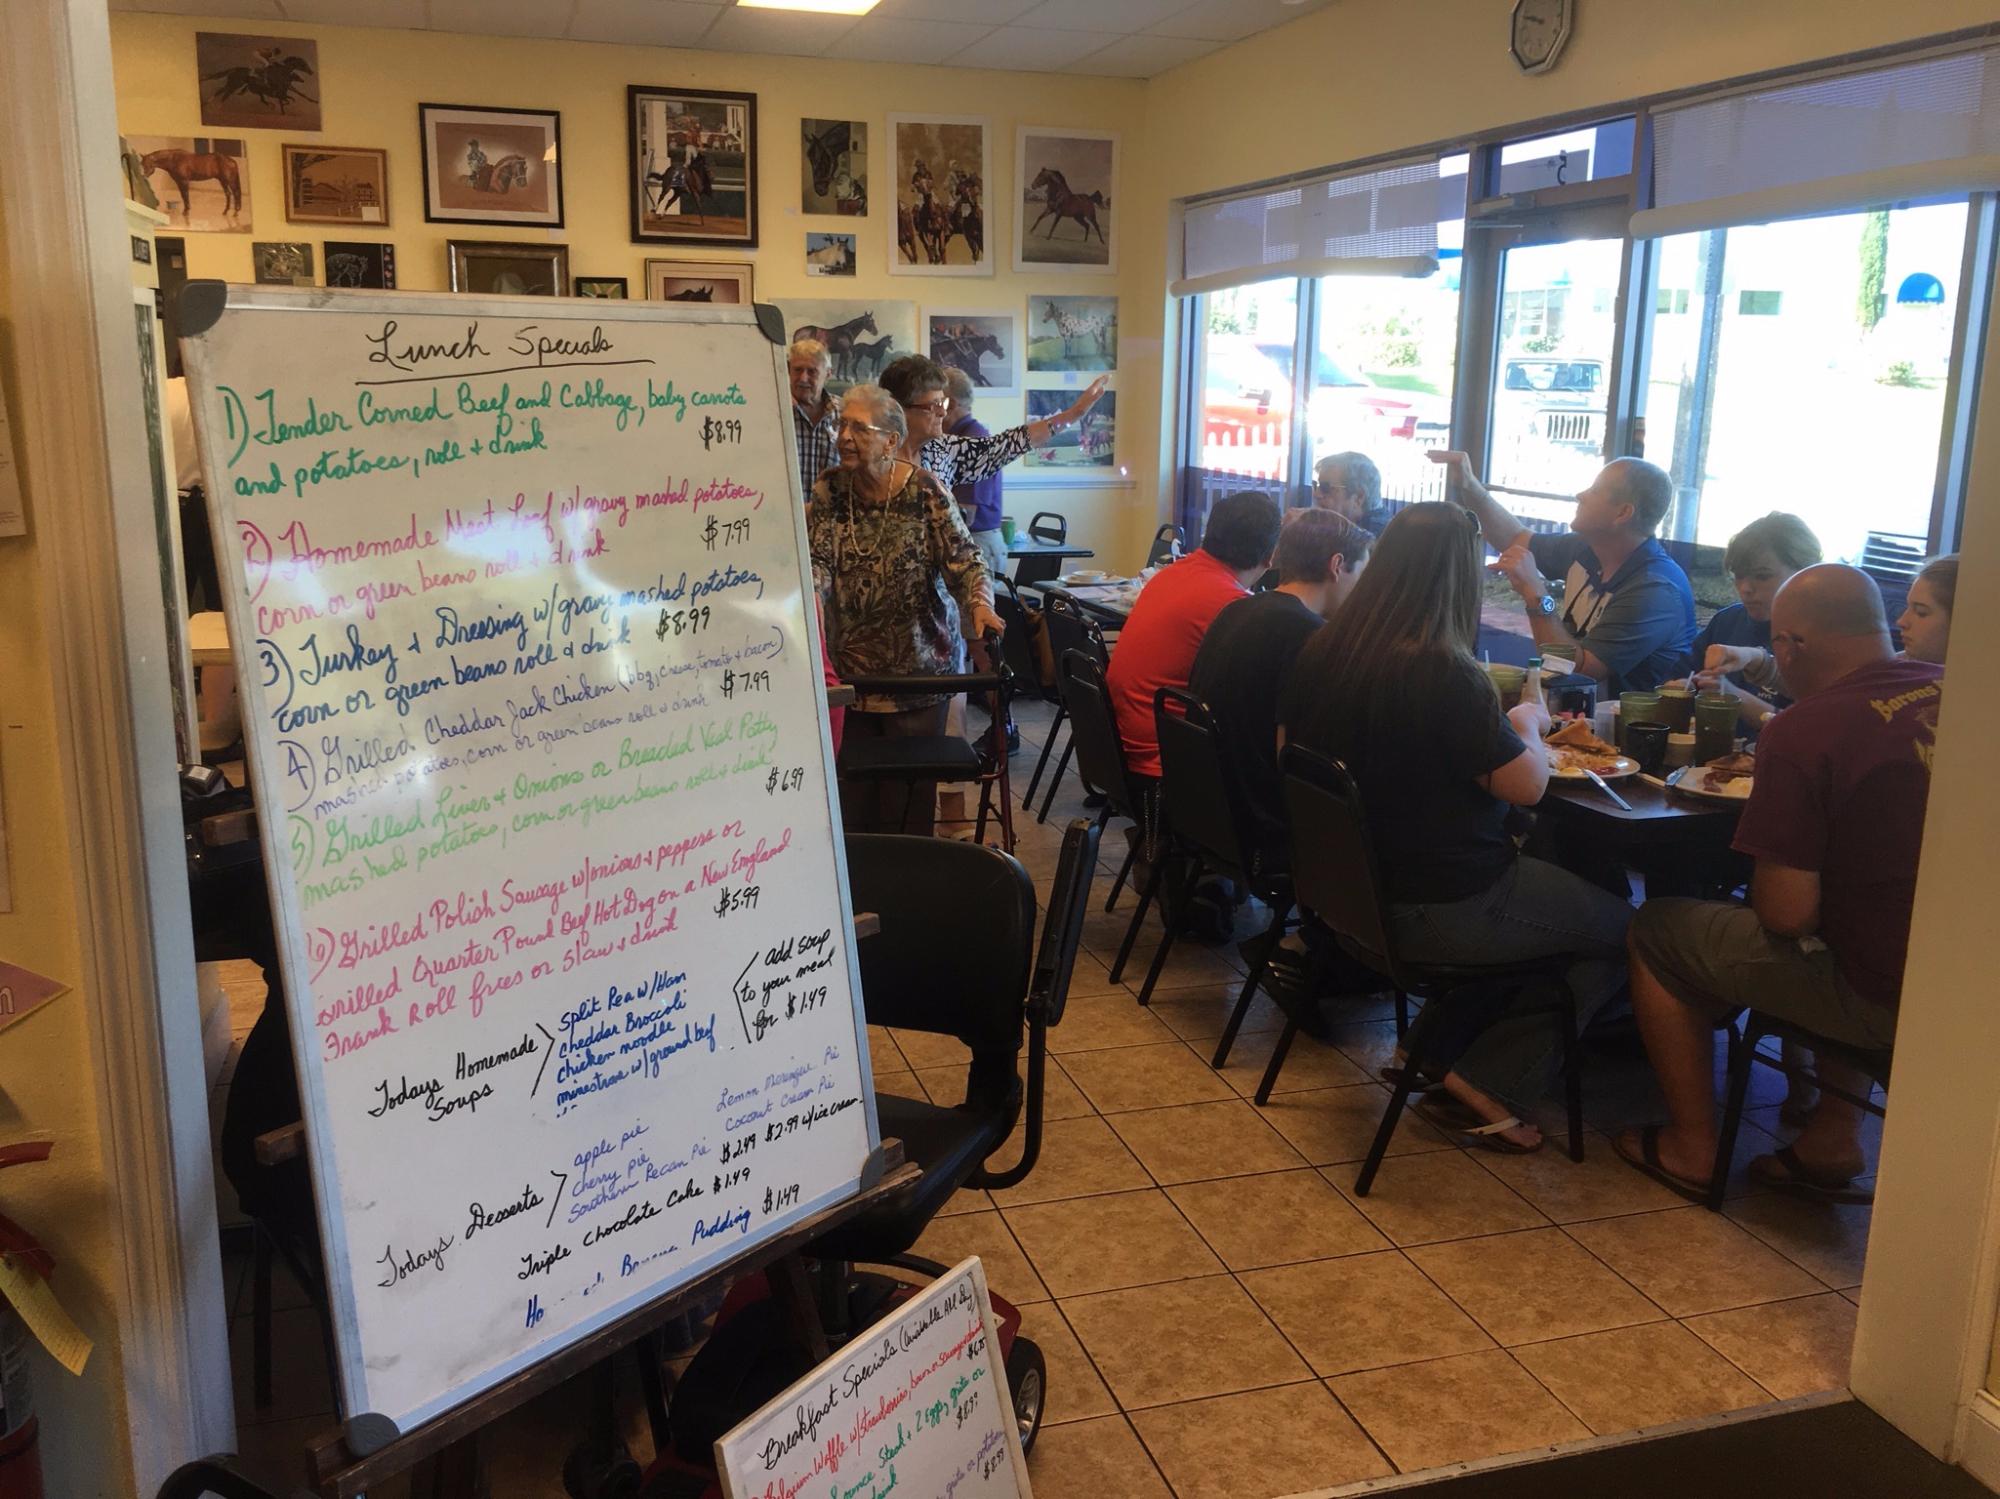 Lunch Specials
1) Tender Corned Beef and Cabbage, baby carrots
and potatoes, roll + drink $8.99
2) Homemade Meat Loaf w/ gravy mashed potatoes,
corn or green beans roll + drink $7.99
3) Turkey + Dressing w/ gravy mashed potatoes,
corn or green beans roll + drink $8.99
4) Grilled Cheddar Jack Chicken (bbq, cheese, tomato + bacon)
mashed potatoes, corn or green beans roll + drink $7.99
5) Grilled Liver + Onions or Breaded Veal Patty
mashed potatoes, corn or green beans roll + drink $6.99
6) Grilled Polish Sausage w/onions + peppers or
Grilled Quarter Pound Beef Hot Dog on a New England
Frank Roll fries or slaw + drink $5.99
Todays Homemade
Soups
Split Pea w/Ham
Cheddar Broccoli
Chicken noodle
minestrone w/ground beef
add soup
to your meal
for $1.49
Todays Desserts
apple pie
cherry pie
Southern Pecan Pie
Lemon Meringue Pie
Coconut Cream Pie
$2.49 $2.99 w/ice cream
Triple Chocolate Cake $1.49
Pudding $1.49
Breakfast Specials (Available All Day)
Belgium Waffle w/strawberries, bacon or sausage + drink
$6.75
ounce Steak + 2 Eggs, grits or
drink $8.99
grits or potatoes
$8.99
Barons